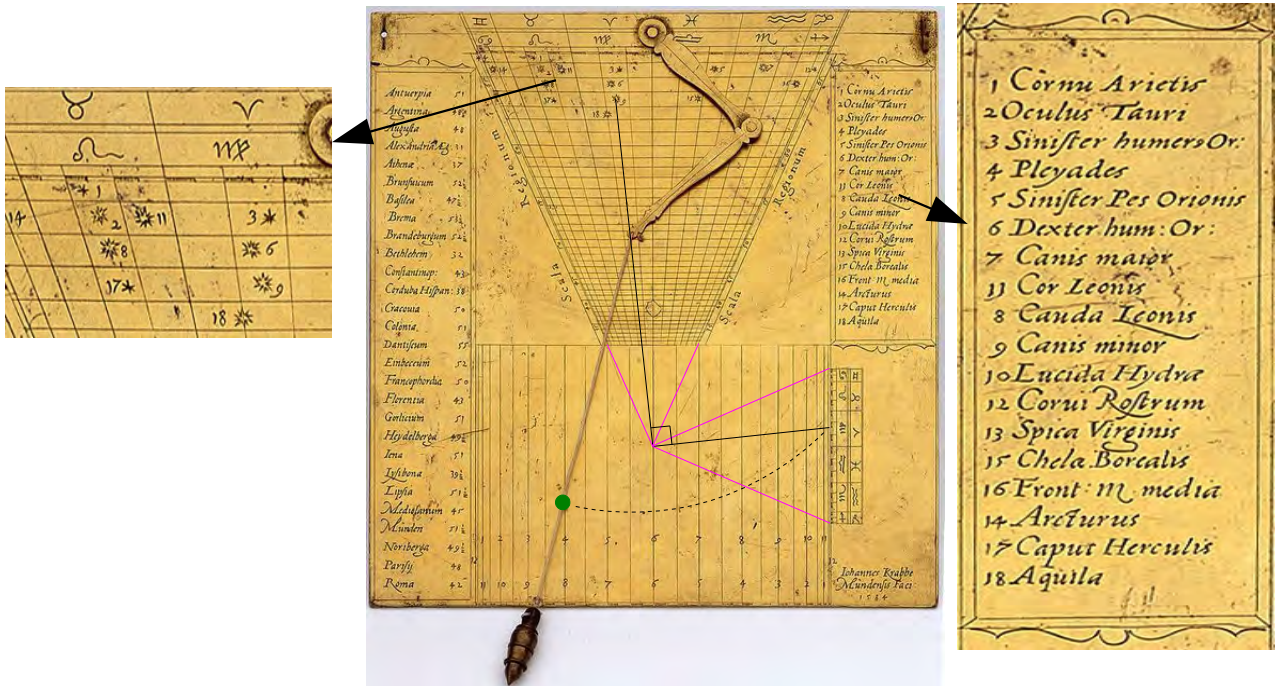 14 1 2 11 3
8 6
17 9
18
Regionum
Scala
Regionum
Scala
Antuerpia 51
Argentina 48
Augusta 48
Alexandria Æg. 31
Athenæ 37
Brunsuicum 52½
Basilea 47½
Brema 53½
Brandeburgum 52½
Bethlehem 32
Constantinop: 43
Corduba Hispan: 38
Cracouia 50
Colonia 51
Dantiscum 55
Einbeccum 52
Francophordia 50
Florentia 43
Gorlicium 51
Heydelberga 49½
Iena 51
Lysibona 39½
Lipsia 51½
Mediolanum 45
Munden 51½
Noriberga 49½
Parisy 48
Roma 42
1 Cornu Arietis
2 Oculus Tauri
3 Sinister humerꝰ Or:
4 Pleyades
5 Sinister Pes Orionis
6 Dexter hum: Or:
7 Canis maior
11 Cor Leonis
8 Cauda Leonis
9 Canis minor
10 Lucida Hydræ
12 Corui Rostrum
13 Spica Virginis
15 Chela Borealis
16 Front ♏ media
14 Arcturus
17 Caput Herculis
18 Aquila
12 1 2 3 4 5 6 7 8 9 10 11
11 10 9 8 7 6 5 4 3 2 1 12
Iohannes Krabbe
Mundensis Faci
1584
1 Cornu Arietis
2 Oculus Tauri
3 Sinister humerꝰ Or:
4 Pleyades
5 Sinister Pes Orionis
6 Dexter hum: Or:
7 Canis maior
11 Cor Leonis
8 Cauda Leonis
9 Canis minor
10 Lucida Hydræ
12 Corui Rostrum
13 Spica Virginis
15 Chela Borealis
16 Front: ♏ media
14 Arcturus
17 Caput Herculis
18 Aquila